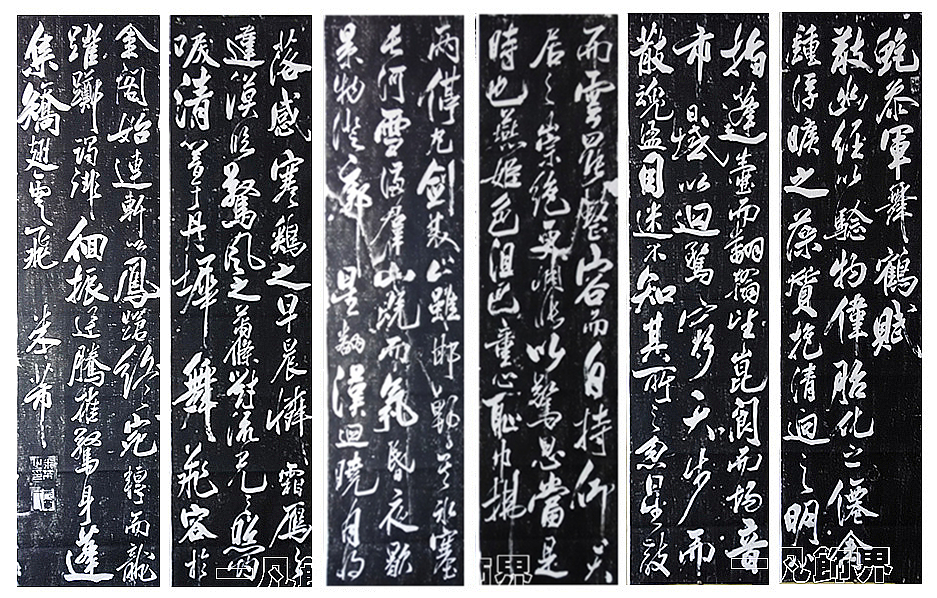 鮑參軍舞鶴賦
散幽經以驗物偉胎化之僊禽
鍾浮曠之藻質抱清迥之明
指蓬壺而翻翰望崑閬而揚音
帀日域以迴騖窮天步而
散魂盪目迷不知其所之忽星
而雲罷整容而自持仰天
居之崇絕更惆悵以驚思當是
時也燕姬色沮巴童心恥巾拂
兩停丸劍雙止雖邯鄲冰塞
長河雪滿群山既而氣昏夜歇
景物澄廓星翻漢迴曉月將
落感寒鷄之早晨憐霜鴈
違漠臨驚風之蕭條對流光之照灼
唳清響於丹墀舞飛容於
金閣始連軒以鳳蹌終宛轉而龍
躍躑躅徘徊振迅騰摧驚身蓬
集矯翅雪飛 米芾
一凡飾界
一凡飾界